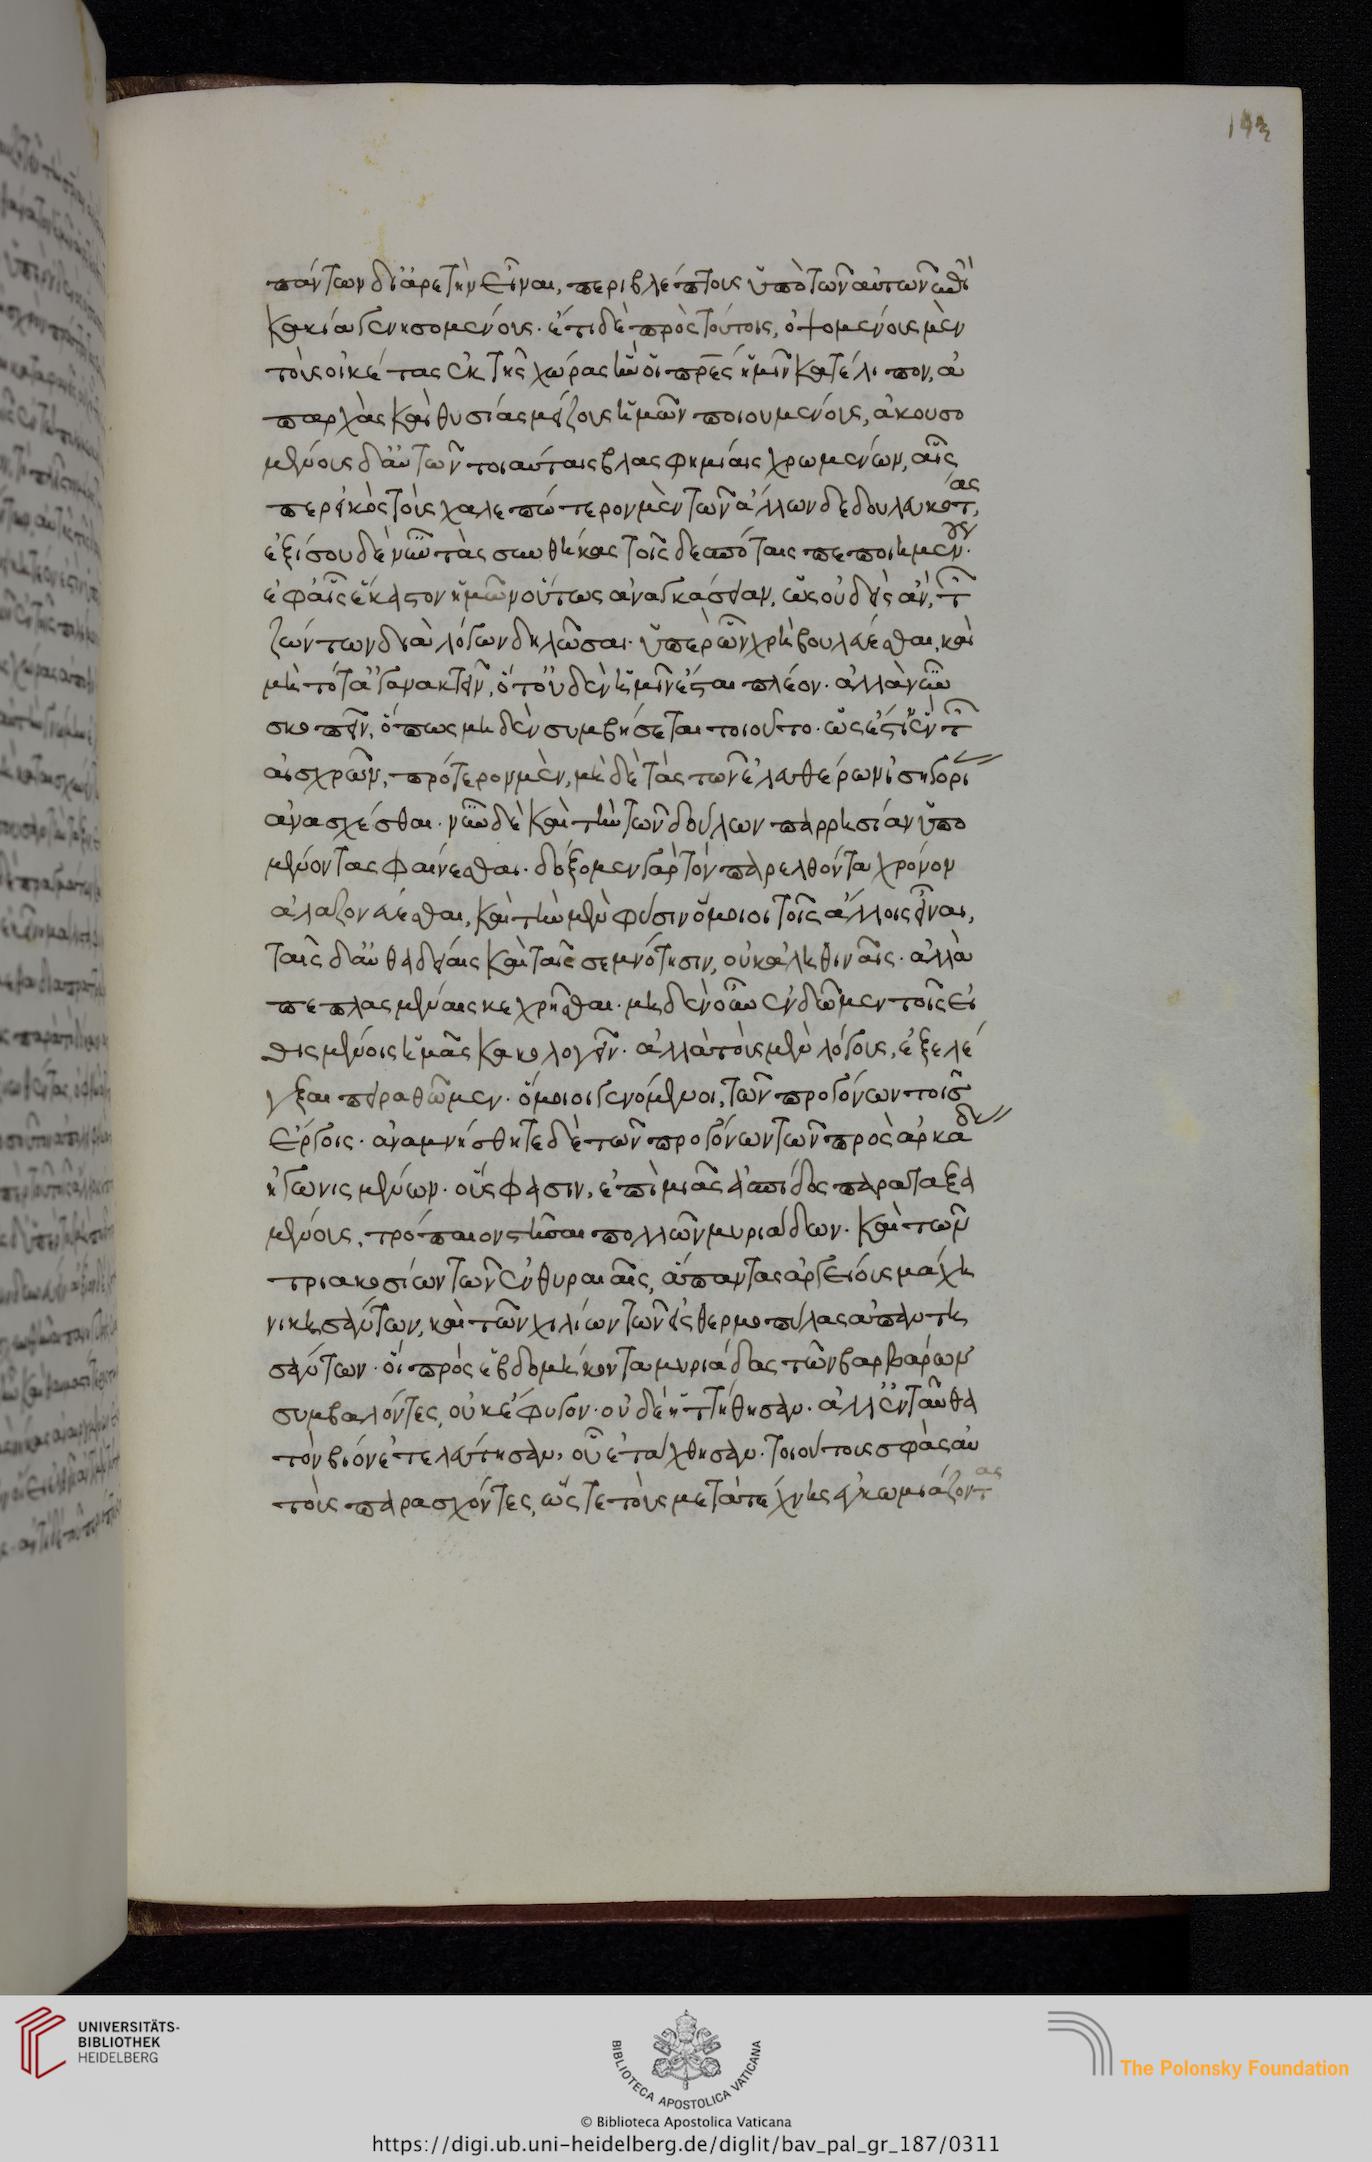 143
πάντων δι' ἀρετὴν εἶναι, περιβλέπτους ὑπὸ τῶν αὐτῶν ἐπὶ
κακία γενησομένοις. ἔτι δὲ πρὸς τούτοις, ὀψομένοις μὲν
τοὺς οἰκέτας ἐκ τῆς χώρας ἣν οἱ πρες ἡμῖν κατέλιπον, ἀ
παρχὰς καὶ θυσίας μείζους ἡμῶν ποιουμένοις, ἀκουσο
μένοις δ' αὐτῶν τοιαύταις βλασφημίαις χρωμένων, αἷς
περ εἰκὸς τοὺς χαλεπώτερον μὲν τῶν ἄλλων δεδουλευκότας,
ἐξίσου δὲ νῦν τὰς συνθήκας τοῖς δεσπόταις πεποιημένους.
ἐφ' αἷς ἕκαστον ἡμῶν οὕτως ἀναγκάσειαν, ὡς οὐδεὶς ἂν, τ
ζώντων διὰ λόγων δηλῶσαι. ὑπὲρ ὧν χρὴ βουλεύεσθαι, καὶ
μὴ τότ' ἀγανακτεῖν, ὅτ' οὐδὲν ἡμῖν ἔσται πλέον. ἀλλὰ νῦν
σκοπεῖν, ὅπως μηδὲν συμβήσεται τοιοῦτο. ὡς ἔστι ἓν τ
αἰσχρῶν, πρότερον μὲν, μὴ δὲ τὰς τῶν ἐλευθέρων ἰσηγορί
ἀνασχέσθαι. νῦν δὲ καὶ τὴν τῶν δούλων παρρησίαν ὑπο
μένοντας φαίνεσθαι. δόξομεν γὰρ τὸν παρελθόντα χρόνον
ἀλαζονεύεσθαι, καὶ τὴν μὲν φύσιν ὅμοιοι τοῖς ἄλλοις εἶναι,
ταῖς δ' αὐθαδείαις καὶ ταῖς σεμνότησιν, οὐκ ἀληθιναῖς. ἀλλὰ
πεπλασμέναις κεχρῆσθαι. μηδὲν οὖν ἐνδῶμεν τοῖς εἰ
θισμένοις ἡμᾶς κακολογεῖν. ἀλλὰ τοὺς μὲν λόγους, ἐξελέ
γξαι πειραθῶμεν. ὅμοιοι γενόμενοι, τῶν προγόνων τοῖς
ἔργοις. ἀναμνήσθητε δὲ τῶν προγόνων τῶν πρὸς ἀρκαδ
ἠγωνισμένων. οὕς φασιν, ἐπὶ μιᾶς ἀσπίδος παραταξα
μένους, τρόπαιον στῆσαι πολλῶν μυριάδων. καὶ τῶν
τριακοσίων τῶν ἐν θυραιαῖς, ἅπαντας ἀργείους μάχη
νικησάντων, καὶ τῶν χιλίων τῶν εἰς θερμοπύλας ἀπαντη
σάντων. οἳ πρὸς ἑβδομήκοντα μυριάδας τῶν βαρβάρων
συμβαλόντες, οὐκ ἔφυγον. οὐδ' ἡττήθησαν. ἀλλ' ἐνταῦθα
τὸν βίον ἐτελεύτησαν, οὗ ἐτάχθησαν. τοιούτους σφᾶς αὐ
τοὺς παρασχόντες, ὥστε τοὺς μετὰ τέχνης ἐγκωμιάζοντας
UNIVERSITÄTS-
BIBLIOTHEK
HEIDELBERG
BIBLIOTECA APOSTOLICA VATICANA
The Polonsky Foundation
© Biblioteca Apostolica Vaticana
https://digi.ub.uni-heidelberg.de/diglit/bav_pal_gr_187/0311